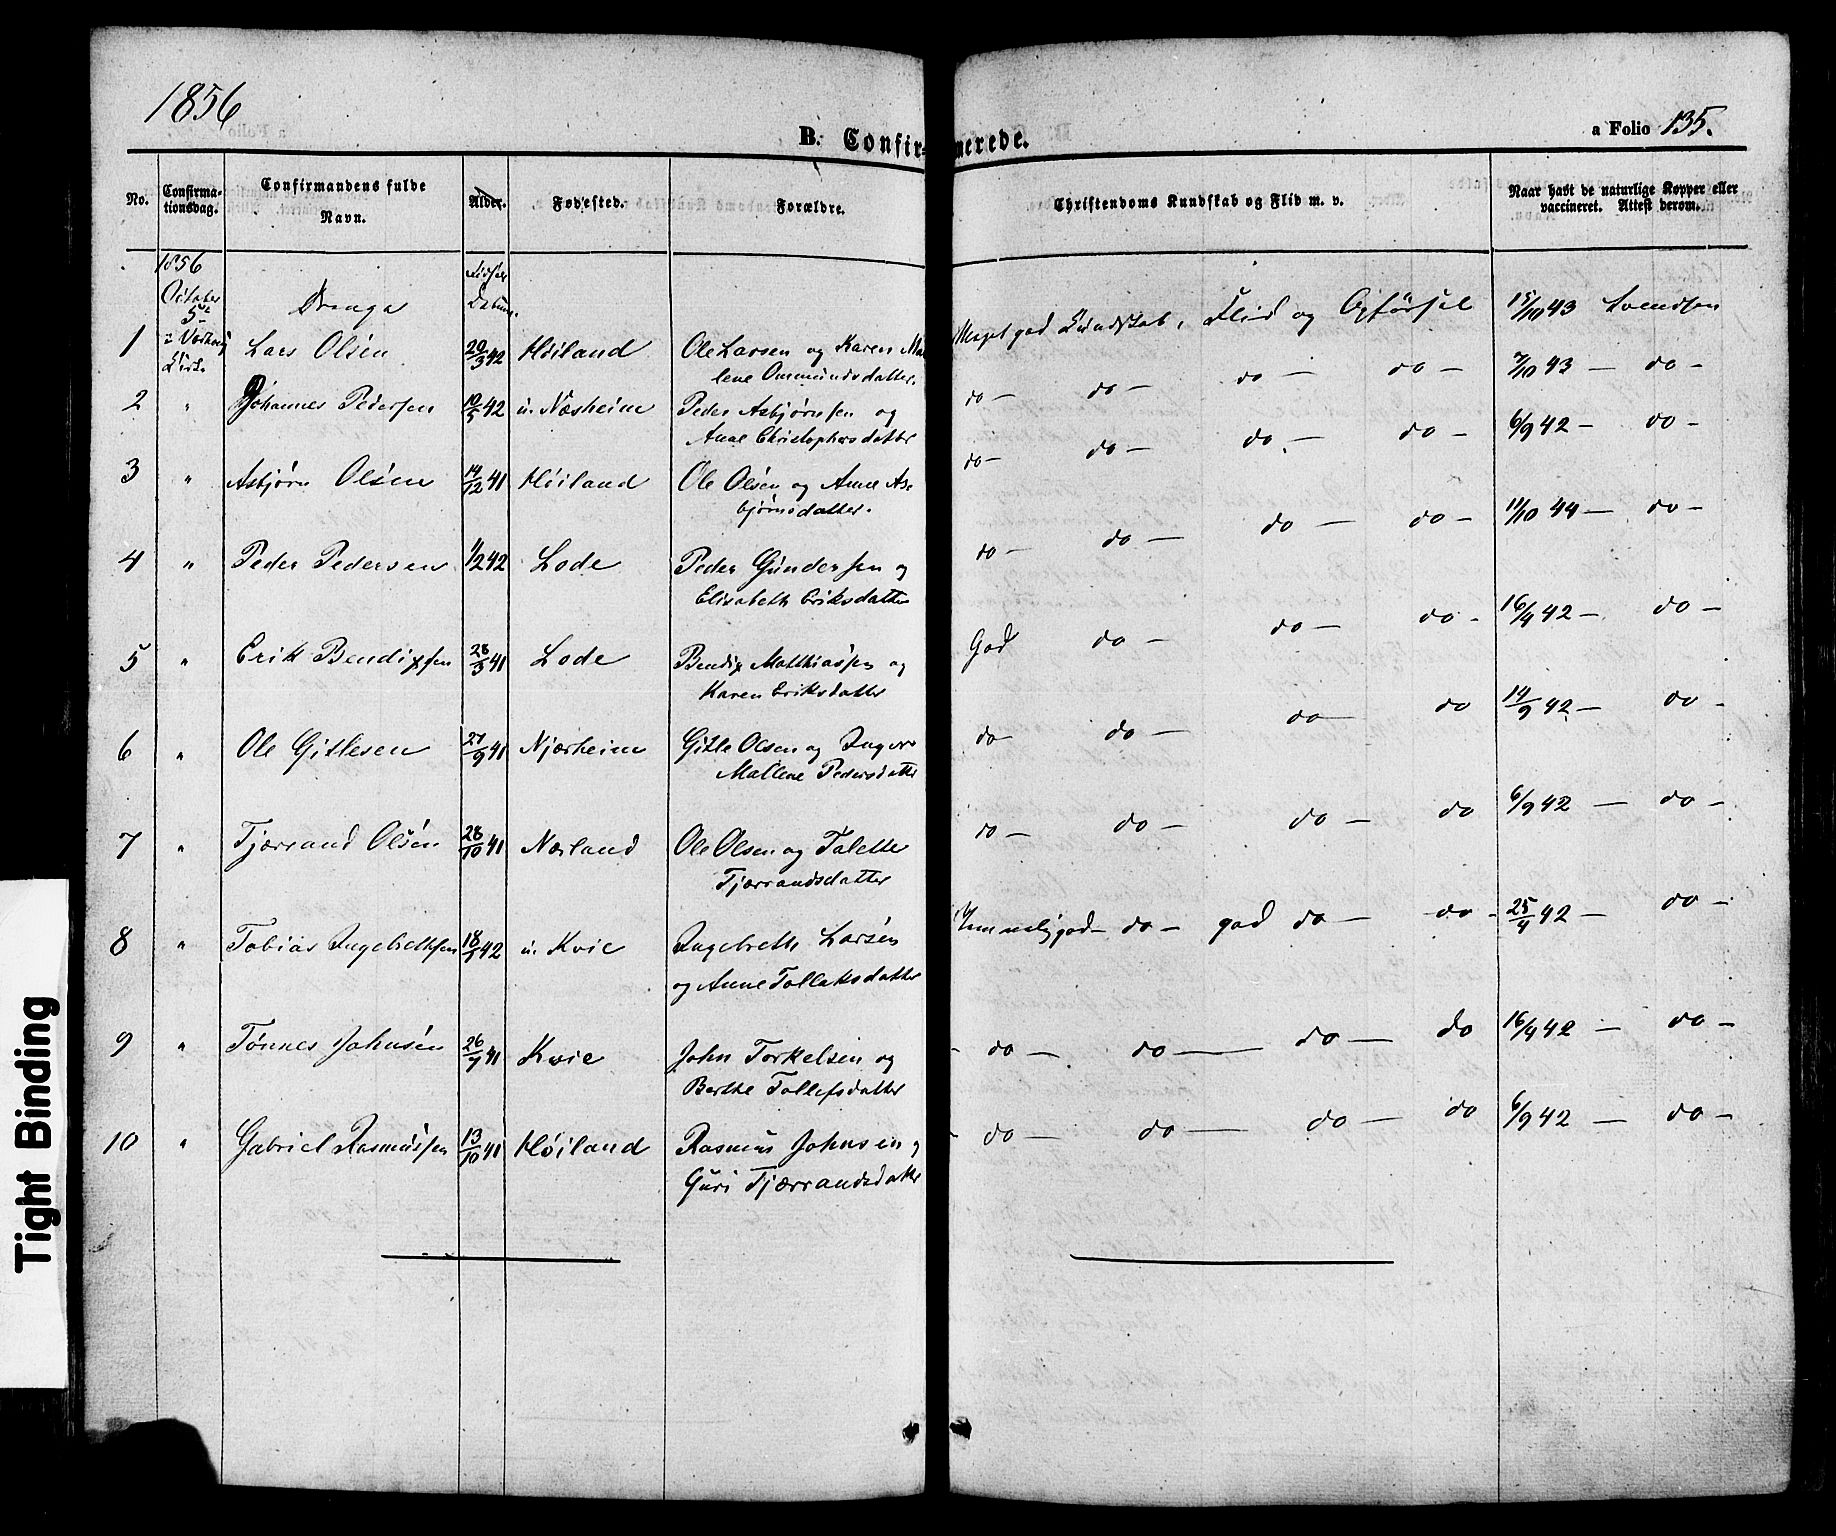 1856
B. Confirmerede.
a Folio 135.
No. Confirmationsdag. Confirmandens fulde Navn. Alder. Fødested. Forældre. Christendoms Kundskab og Flid m. v. Naar havt de naturlige Kopper eller vaccineret. Attest derom.
1856 October 5te
Drenge
1 Lars Olsen 20/3 42 Høiland Ole Larsen og Karen Malene Ommundsdatter. Meget god Kundskab, Flid og Opførsel 15/10 43 Svendsen
2 " Johannes Pedersen 10/5 42 u. Næsheim Peder Asbjørnsen og Anne Christophersdatter do — do — do — do — 7/10 43 — do —
3 " Asbjørn Olsen 14/12 41 Høiland Ole Olsen og Anne Asbjørnsdatter. do — do — do — do — 6/9 42 — do —
4 " Peder Pedersen 1/2 42 Lode Peder Gundersen og Elisabeth Eriksdatter do — do — do — do — 11/10 44 — do —
5 " Erik Bendixsen 28/3 41 Lode Bendix Matthiassen og Karen Eriksdatter God do — do — do - 16/4 42 — do —
6 " Ole Gitlesen 27/9 41 Njærheim Gitle Olsen og Inger Mallene Pedersdatter do — do — do — do 14/9 42 — do —
7 " Tjærrand Olsen 28/10 41 Nærland Ole Olsen og Talette Tjærrandsdatter do — do — do — do 6/9 42 — do —
8 " Tobias Ingebrethsen 18/5 42 u. Kvie Ingebreth Larsen og Anne Tollaksdatter Temmelig god — do — god do — do - 25/4 42 — do —
9 " Tønnes Johnsen 26/7 41 Kvie John Torkelsen og Berthe Tollefsdatter - do — do — do — do 16/4 42 — do —
10 " Gabriel Rasmussen 13/10 41 Høiland Rasmus Johnsen og Guri Tjærrandsdatter - do — do — do — do 6/9 42 — do —
Tight Binding